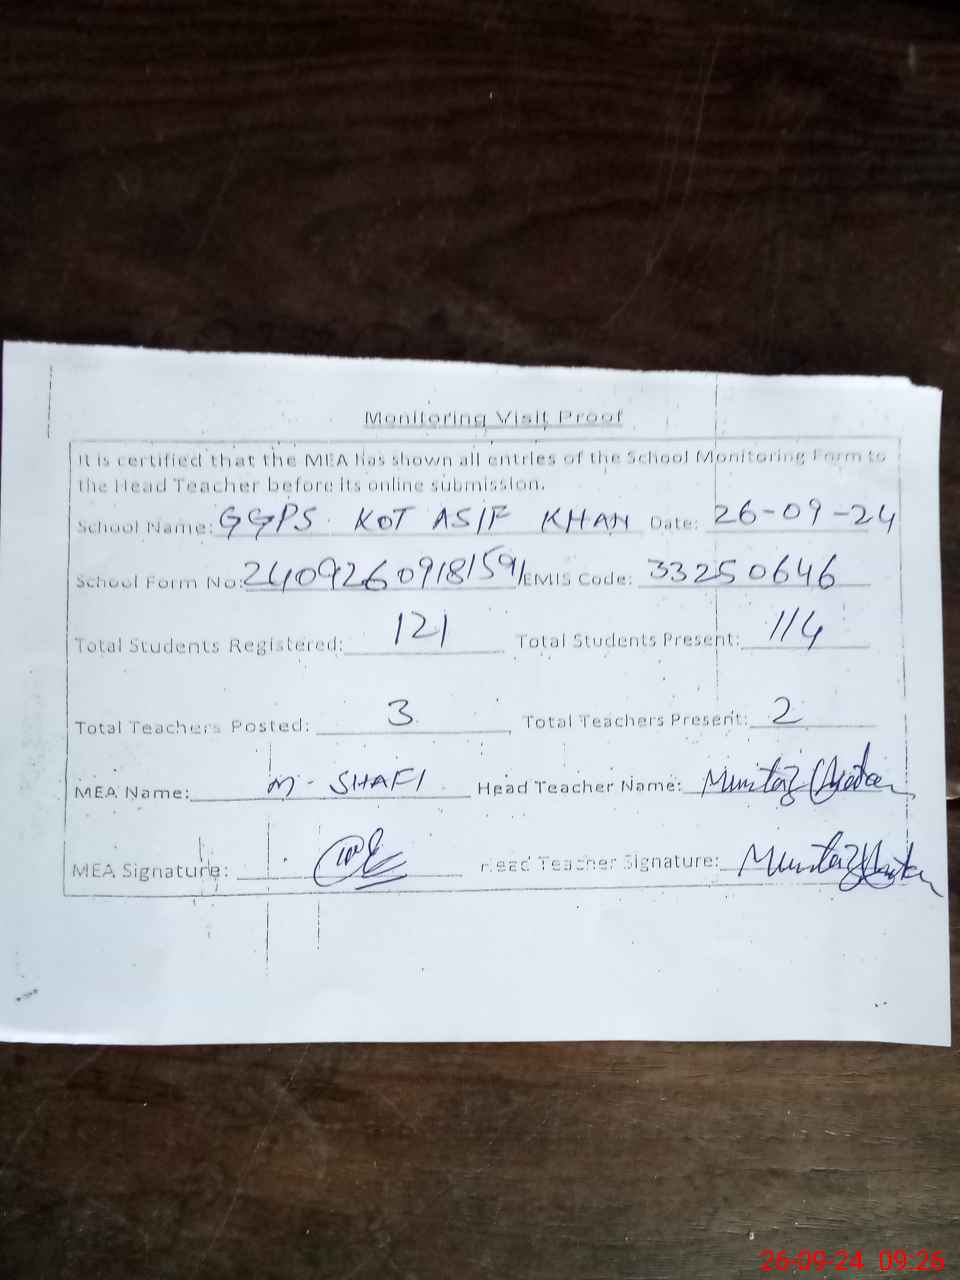 Monitoring Visit Proof
It is certified that the MEA has shown all entries of the School Monitoring Form to
the Head Teacher before its online submission.
School Name: GGPS KOT ASIF KHAN Date: 26-09-24
School Form No: 24092609181591 EMIS Code: 33250646
Total Students Registered: 121 Total Students Present: 114
Total Teachers Posted: 3 Total Teachers Present: 2
MEA Name: M-SHAFI Head Teacher Name: Mumtaz
MEA Signature: Head Teacher Signature: Mumtaz
26-09-24 09:26